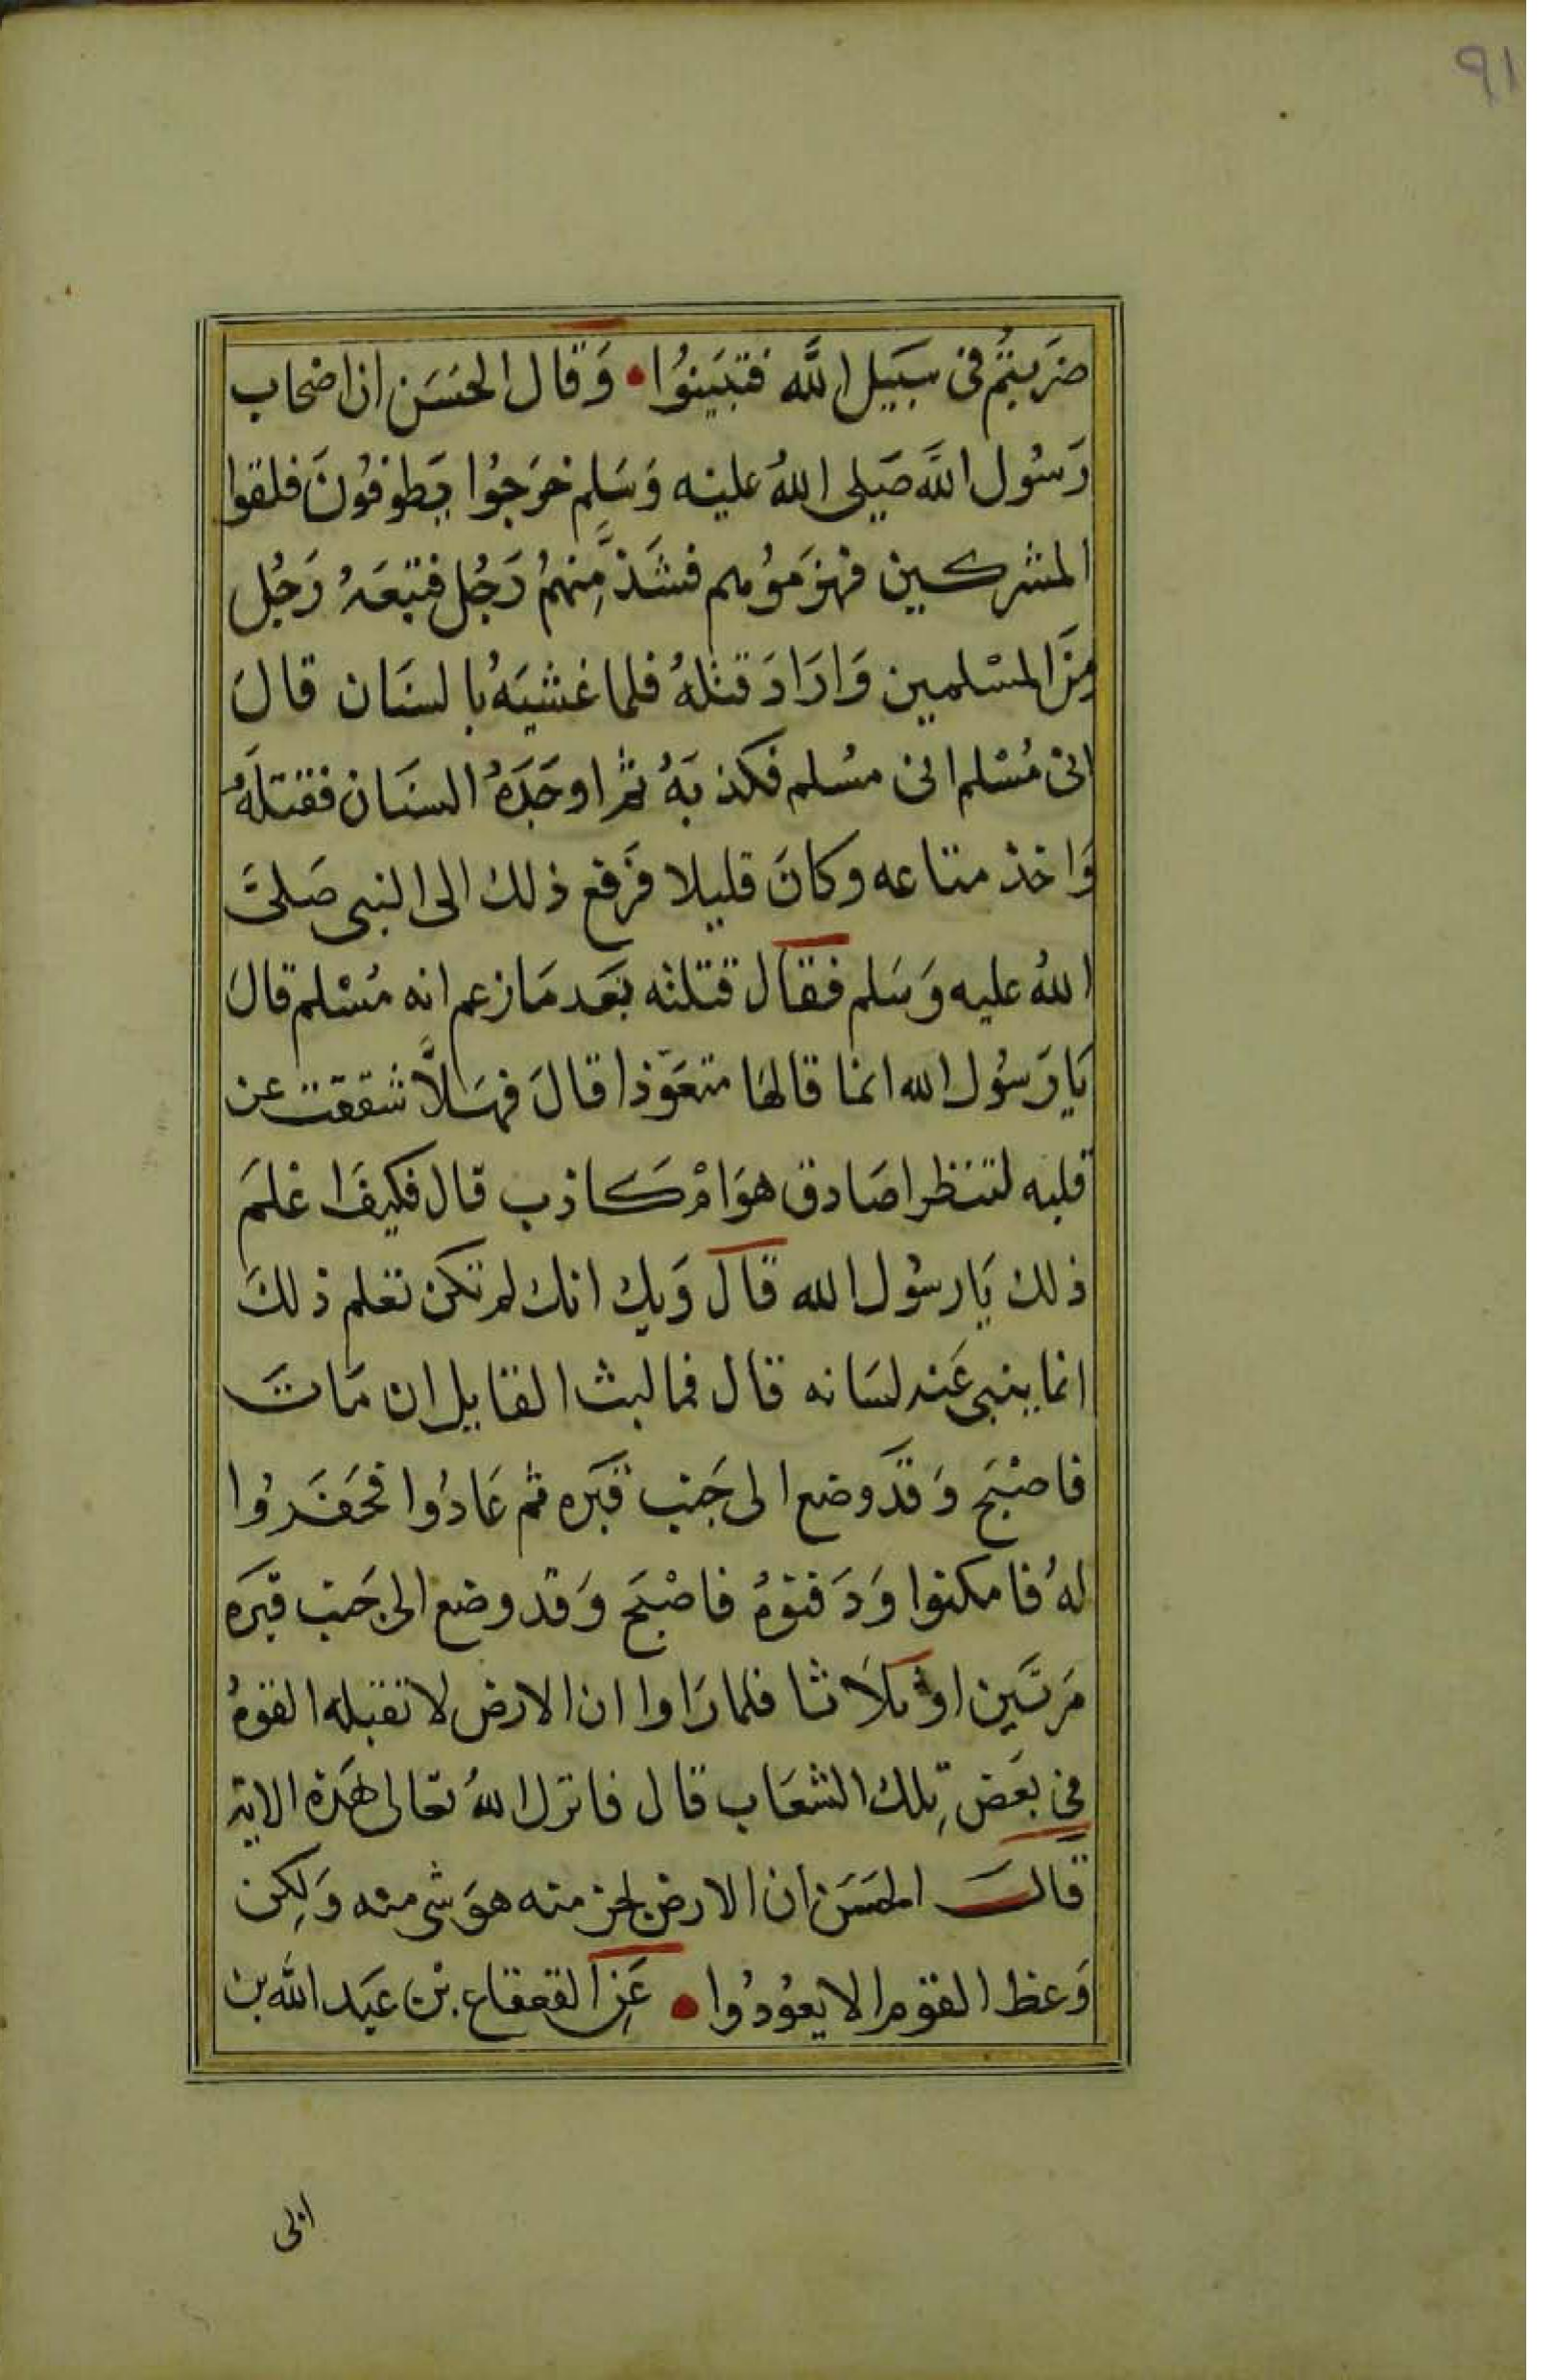 ٩١
ضَرَبتُم فى سَبَيل الله فتبَينوُا • وَقال الحسَن ان اصحاب
رَسُول اللهَ صَلى اللهُ علينه وَسَلم خرَجوُا يَطوفوُنَ فلقوا
المشركين فهزمَوُهم فشَذ مِنهمُ رَجُل فتبعَهُ رَجُل
مِنَ المسْلمين وَارَادَ قتلهُ فلما غشيَهُ بالسنَان قالَ
انى مُسْلم انى مسُلم فكذبَهُ ثم اوجَرَهُ السنَان فقتلهُ
وَاخذ متاعه وكانَ قليلا فرَفع ذلك الى النبى صَلىَّ
اللهُ عليه وَسَلم فقال قتلته بَعَد مَا زعم انه مُسْلم قالَ
يَا رَسُول الله انما قالهَا متعَوّذا قالَ فهَلاَّ شققت عن
قلبه لتنَظر اصَادق هوَ امْ كاذب قال فكيفَ اعْلمَ
ذلك يَا رسوُل الله قالَ وَيك انك لم تكن تعلم ذلكَ
انما ينبى عَنه لسَانه قال فما لبث القايل ان مَاتَ
فاصْبَح وَقدَ وضع الى جَنب قبَره ثم عَادوُا فحَفَروُا
لهُ فامكنوا وَدَفنوُه فاصْبَح وَقد وضع الى جَنب قبَره
مَرتَين او ثلاَثا فلما رَاوا ان الارض لا تقبله القوهُ
فى بَعَض تِلك الشعَاب قال فانزل اللهُ تعَالى هَذه الاية
قالَ الحسَن ان الارض لجز منه هوَ شى منه وَلكِن
وَعظ القوم الا يعوُدوُا • عَن القعقاع بنْ عَبَد الله بن
ابى